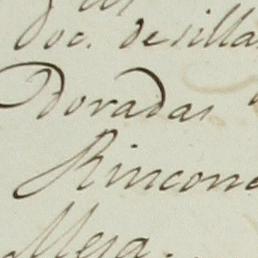 doc. de silla
Doradas
Rincone
Mesa.